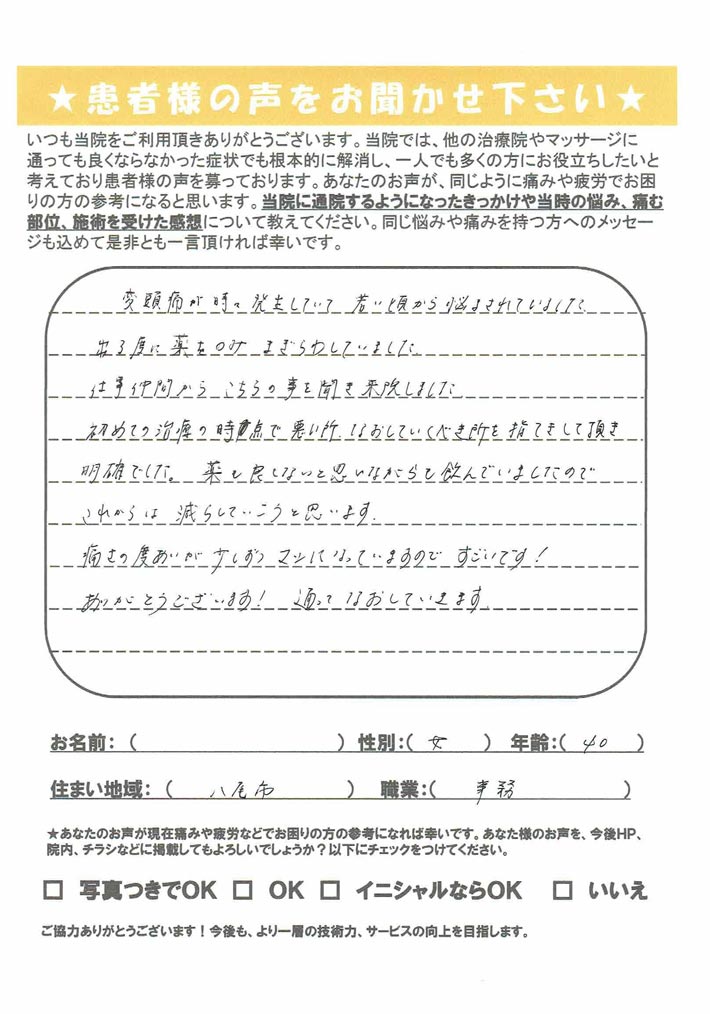 ★患者様の声をお聞かせ下さい★
いつも当院をご利用頂きありがとうございます。当院では、他の治療院やマッサージに
通っても良くならなかった症状でも根本的に解消し、一人でも多くの方にお役立ちしたいと
考えており患者様の声を募っております。あなたのお声が、同じように痛みや疲労でお困
りの方の参考になると思います。当院に通院するようになったきっかけや当時の悩み、痛む
部位、施術を受けた感想について教えてください。同じ悩みや痛みを持つ方へのメッセー
ジも込めて是非とも一言頂ければ幸いです。
頭痛が時々発生していて 若い頃から悩まされていました。
出る度に薬をのみ まぎらわしていました。
仕事仲間から こちらの事を聞き来院しました
初めての治療の時点で悪い所、なおしていくべき所を指てきして頂き
明確でした。 薬も良くないと思いながらも飲んでいましたので
これからは 減らしていこうと思います。
痛さの度あいが少しずつ マシになっていますので すごいです!
ありがとうございます! 通って なおしていきます。
お名前：（ ） 性別：（ 女 ） 年齢：（ 40 ）
住まい地域：（ 八尾市 ） 職業：（ 事務 ）
★あなたのお声が現在痛みや疲労などでお困りの方の参考になれば幸いです。あなた様のお声を、今後HP、
院内、チラシなどに掲載してもよろしいでしょうか？以下にチェックをつけてください。
□ 写真つきでOK □ OK □ イニシャルならOK □ いいえ
ご協力ありがとうございます！今後も、より一層の技術力、サービスの向上を目指します。